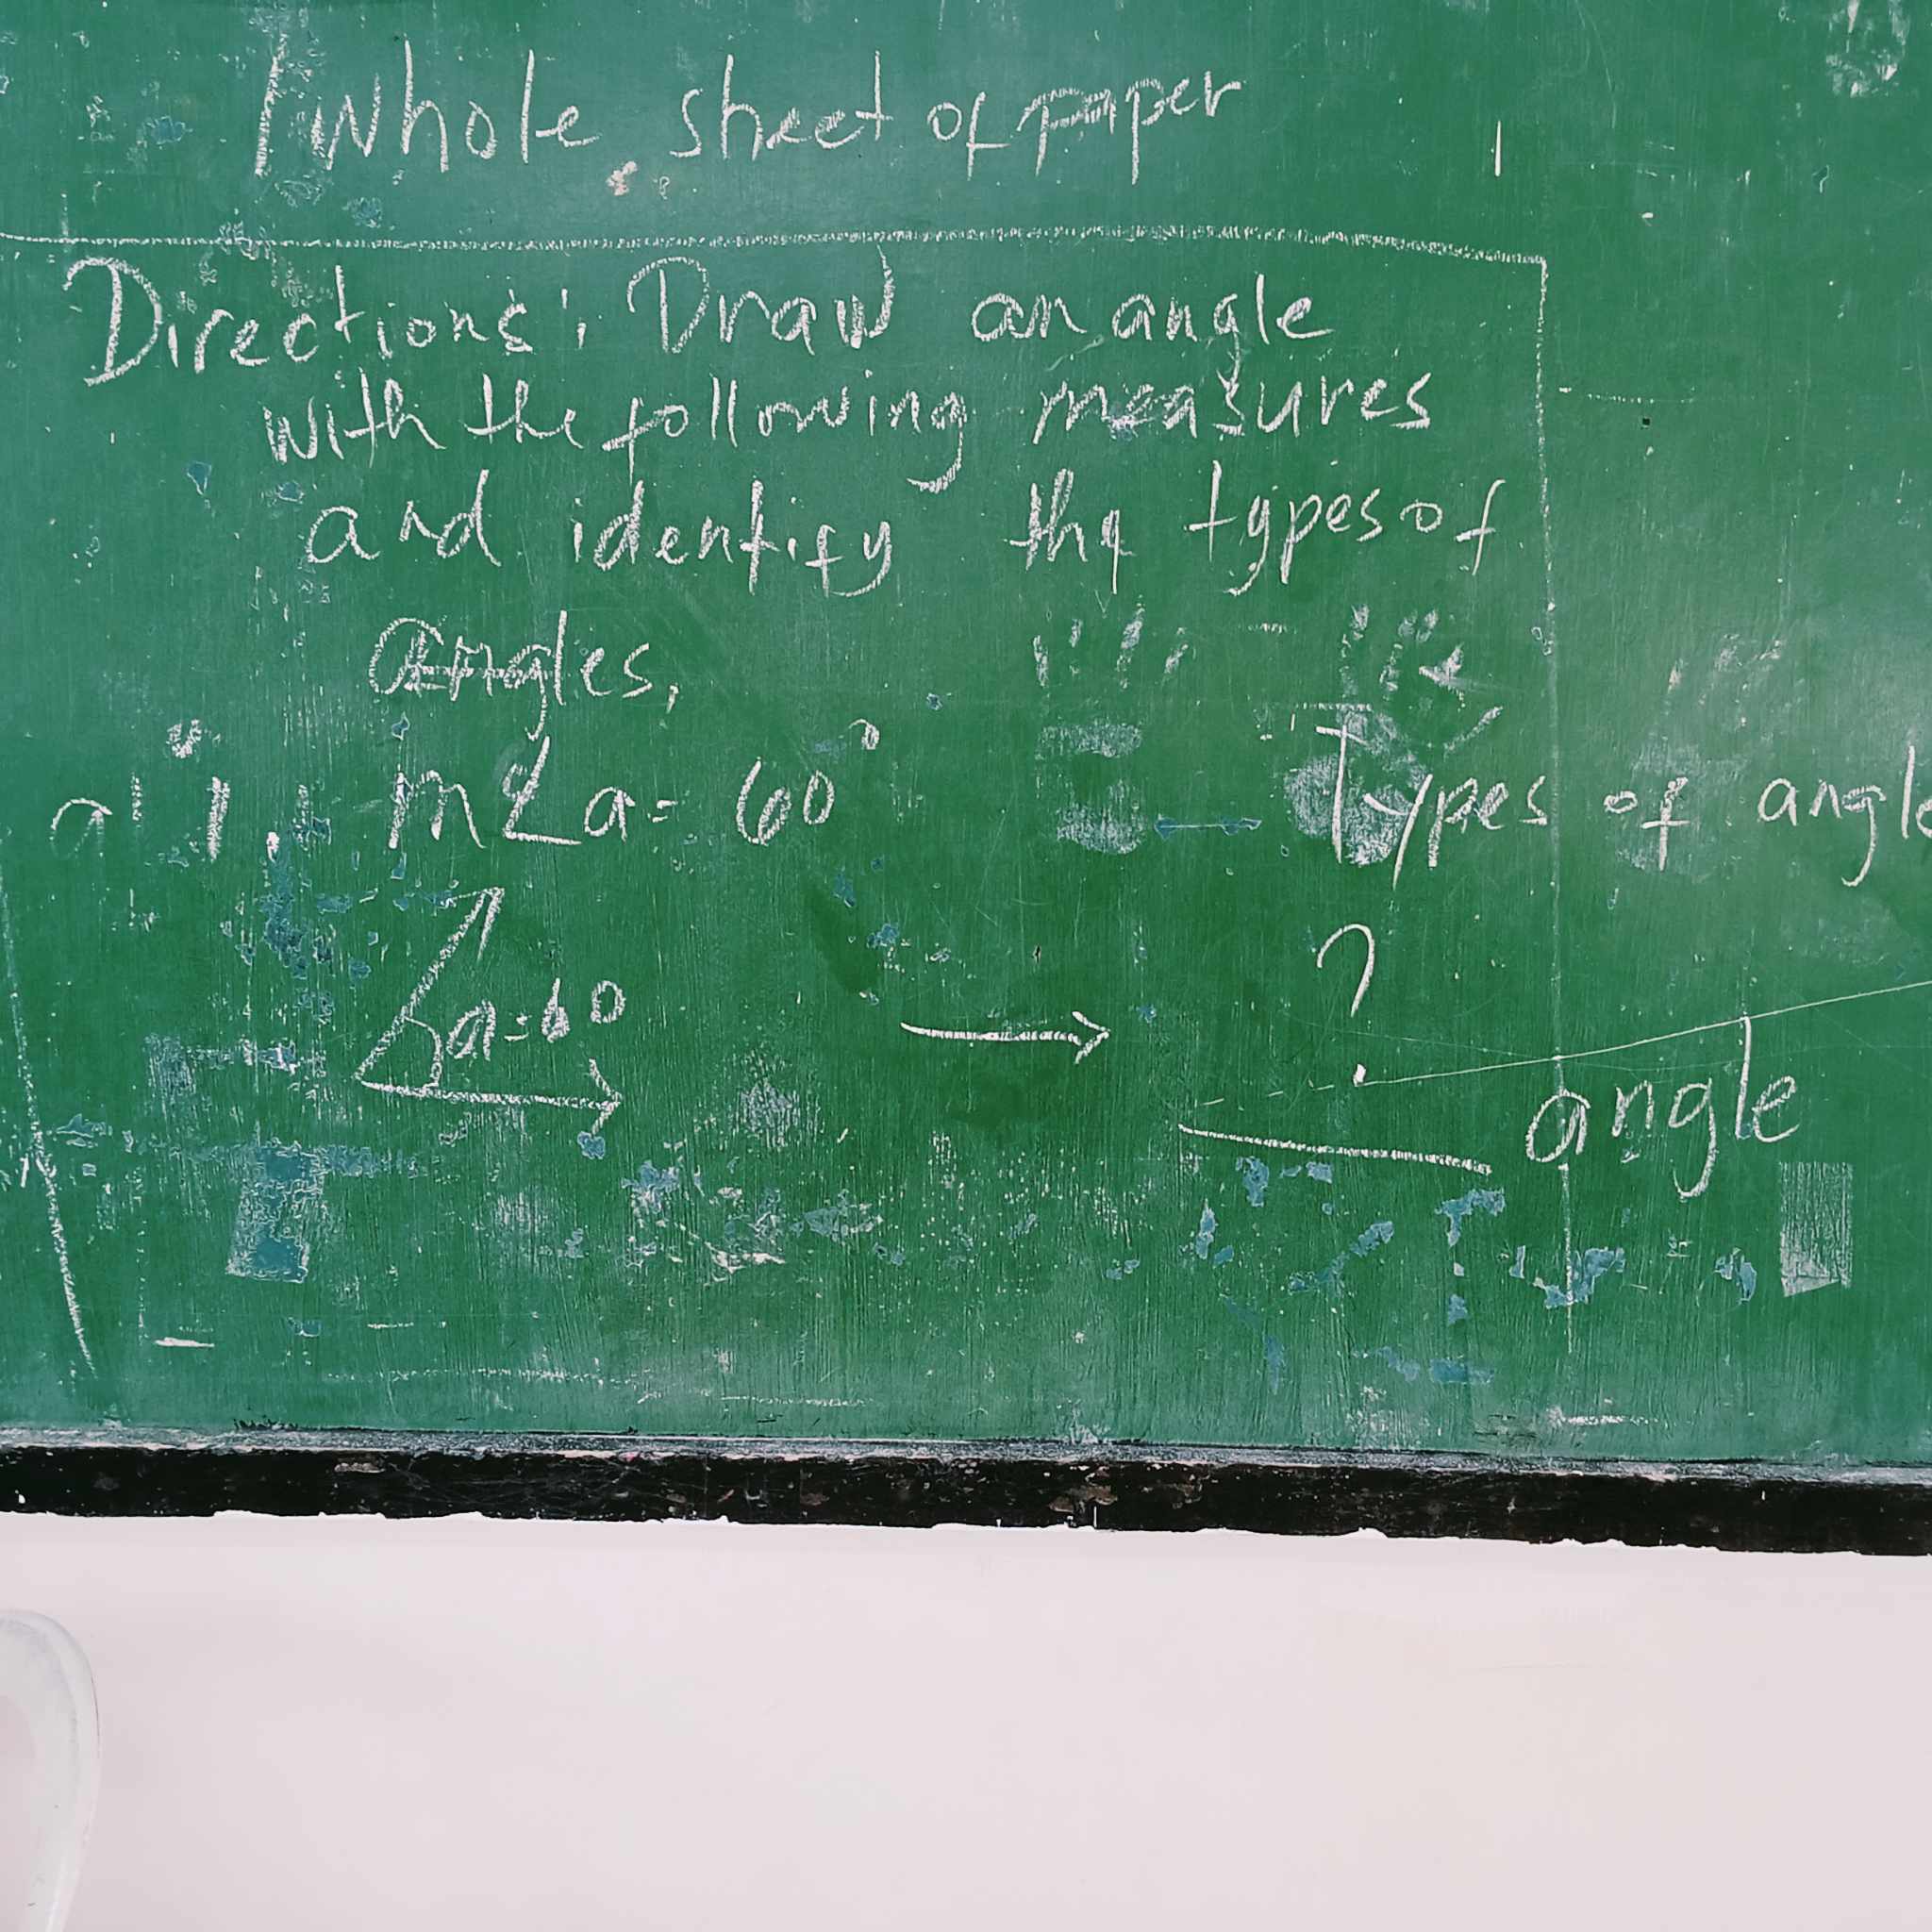 1 whole sheet of paper
Directions: Draw an angle
with the following measures
and identify the types of
angles.
1. m∠a = 60° Types of angle
a=60
?
angle